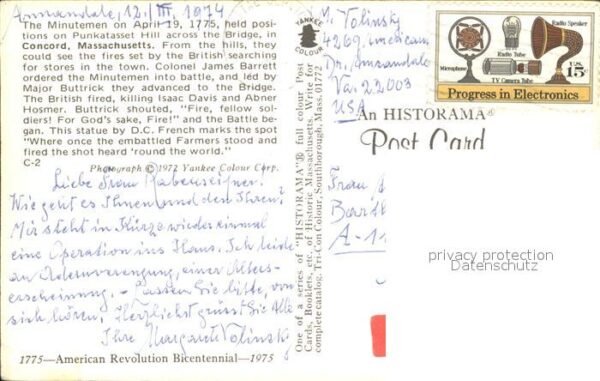 Annandale, 12./III. 1974
The Minutemen on April 19, 1775, held posi-
tions on Punkatasset Hill across the Bridge, in
Concord, Massachusetts. From the hills, they
could see the fires set by the British searching
for stores in the town. Colonel James Barrett
ordered the Minutemen into battle, and led by
Major Buttrick they advanced to the Bridge.
The British fired, killing Isaac Davis and Abner
Hosmer. Buttrick shouted, "Fire, fellow sol-
diers! For God's sake, Fire!" and the Battle be-
gan. This statue by D.C. French marks the spot
"Where once the embattled Farmers stood and
fired the shot heard 'round the world."
C-2
Photograph © 1972 Yankee Colour Corp.
Liebe Frau
Wie geht es Ihnen und den Ihren?
Mir steht in Kürze wieder einmal
eine Operation ins Haus. Ich leide
an Adernverengung, einer Alters-
erscheinung. - Lassen Sie bitte, von
sich hören. Herzlichst grüsst Sie Alle
Ihre Margarete Volinsky
1775—American Revolution Bicentennial—1975
YANKEE
COLOUR
One of a series of "HISTORAMA"® full colour Post
Cards, Booklets, etc. of Historic Massachusetts. Write for
complete catalog, Tri-Con Colour, Southborough, Mass. 01772
M. Volinsky
4269 American
Dr., Annandale
Va. 22003
USA
Radio Speaker
Radio Tube
Microphone
TV Camera Tube
U.S.
15c
Progress in Electronics
An HISTORAMA®
Post Card
Frau
A-11
privacy protection
Datenschutz